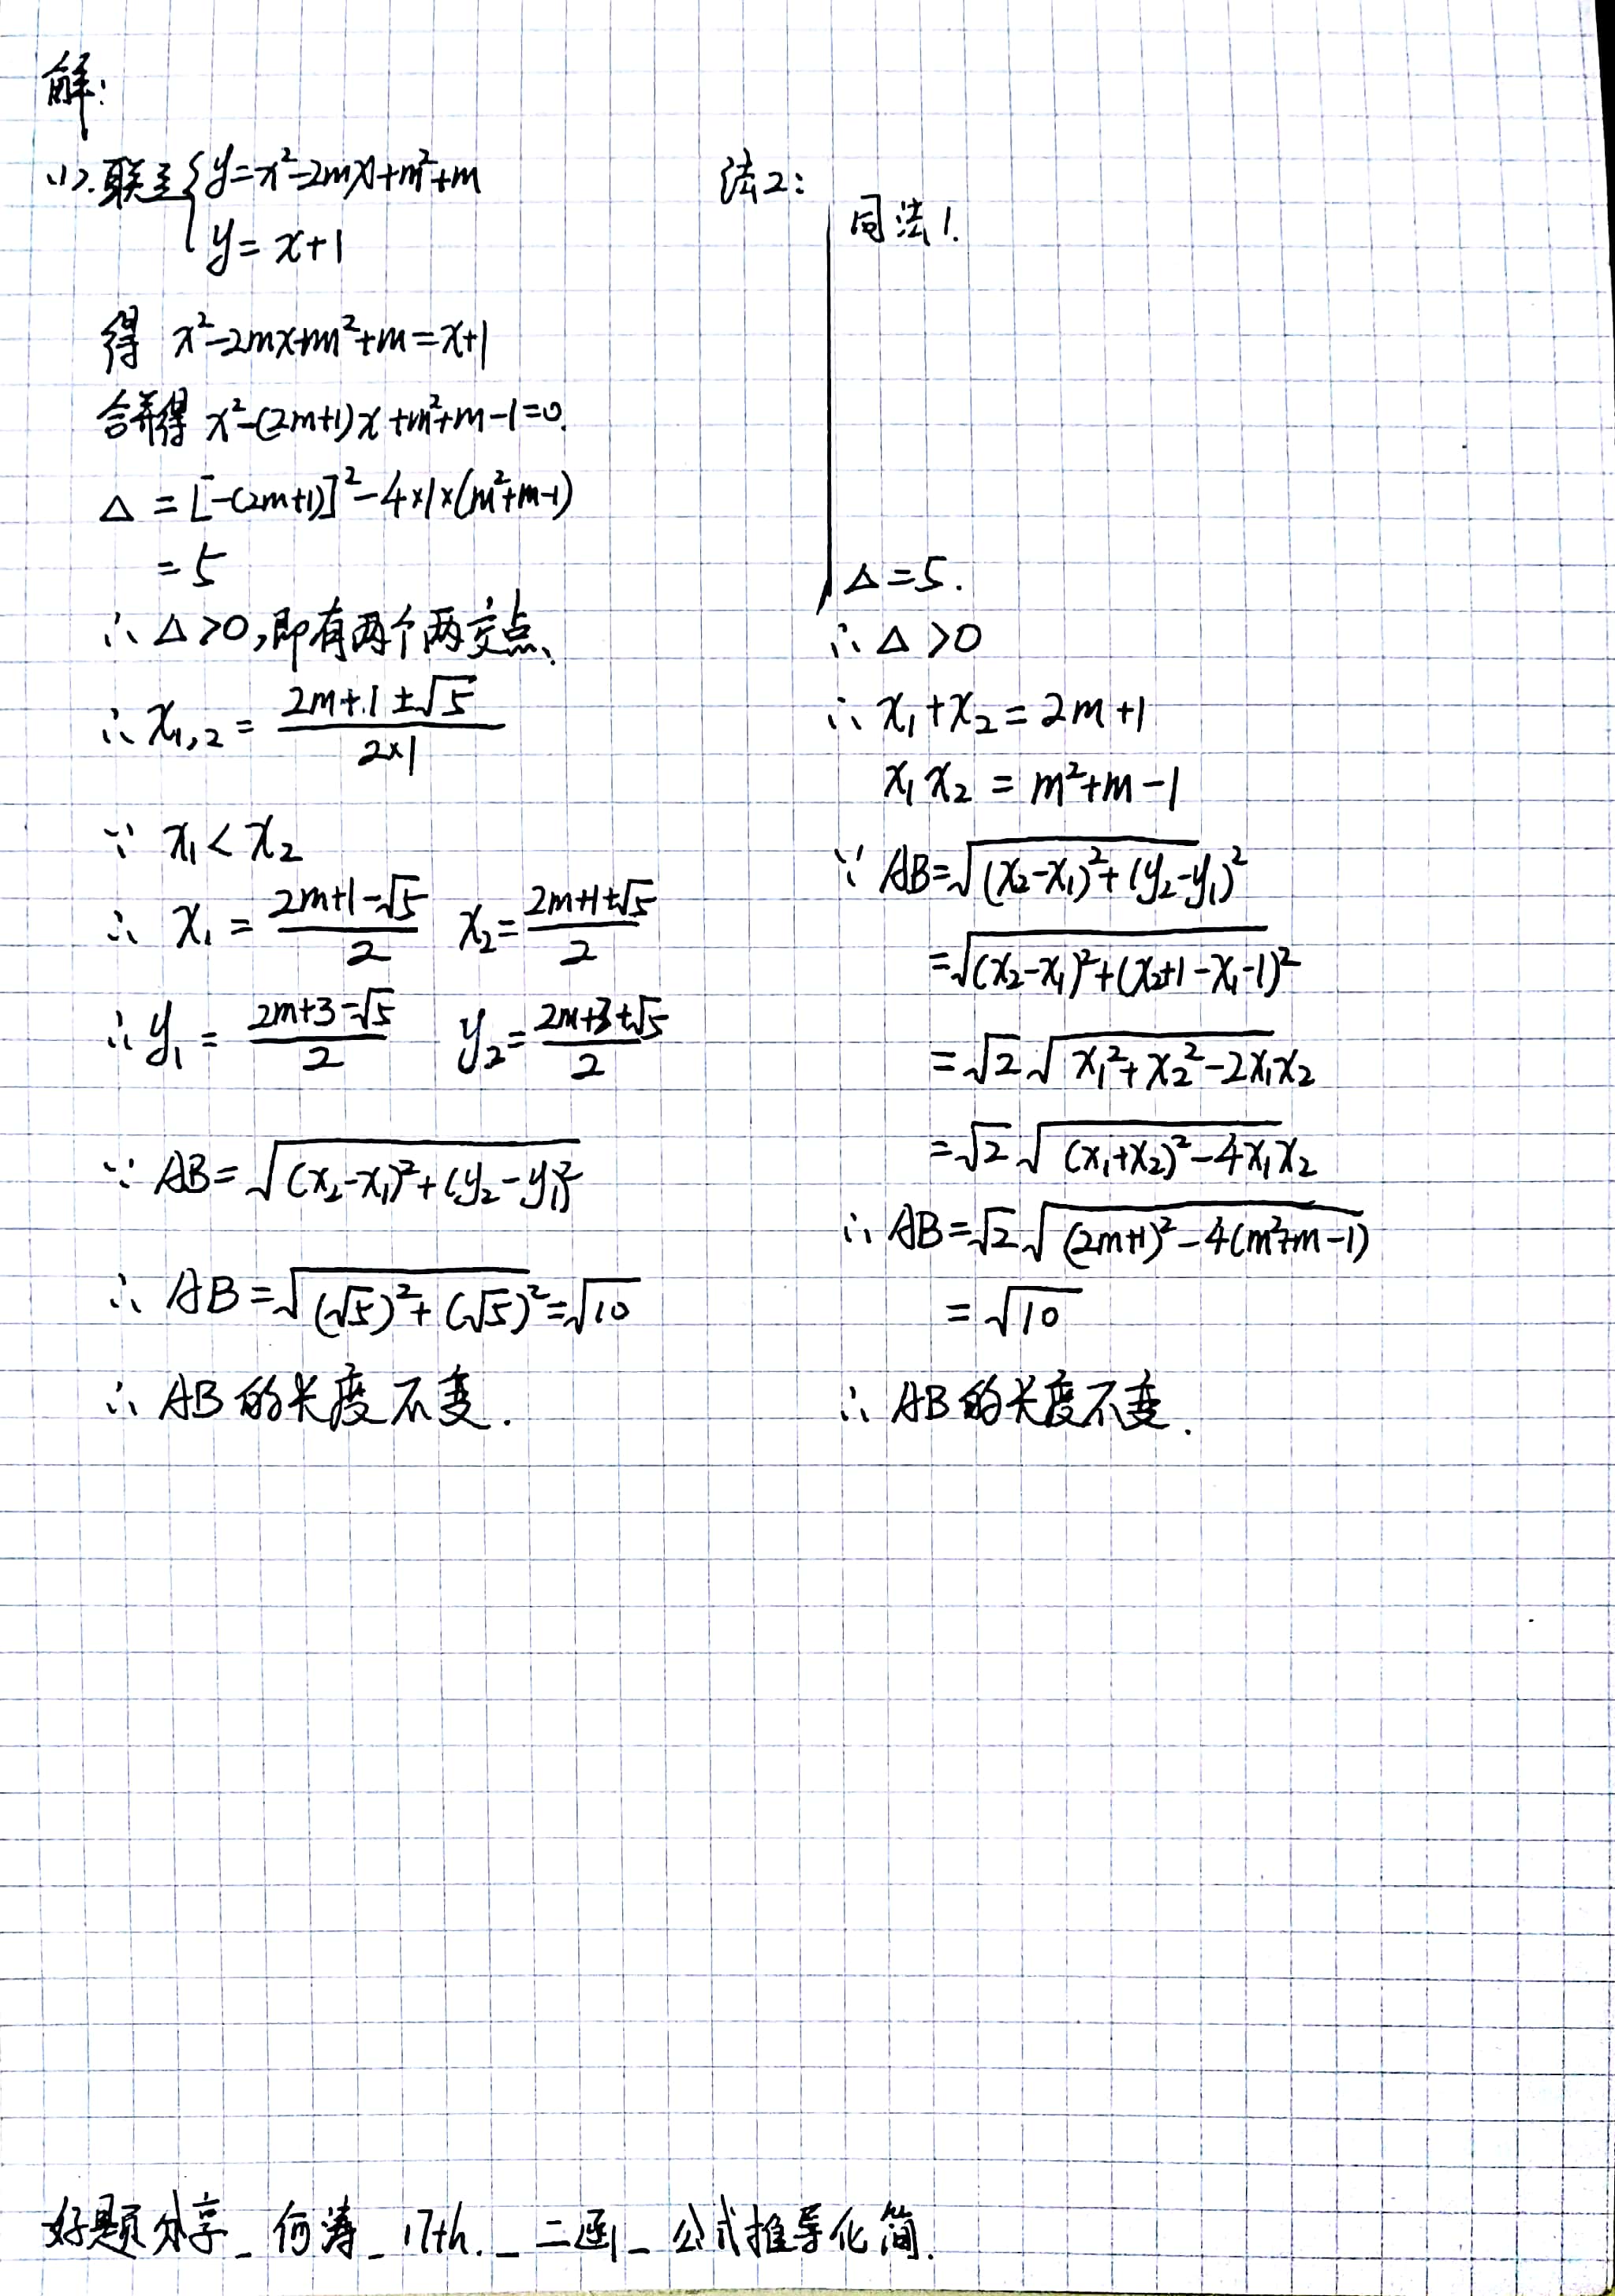 解:
(1).联立{y=x²-2mx+m²+m
y=x+1
得 x²-2mx+m²+m=x+1
合并得 x²-(2m+1)x+m²+m-1=0.
△=[-(2m+1)]²-4×1×(m²+m-1)
=5
∴△>0,即有两个两交点、
∴x₁,₂=(2m+1±√5)/(2×1)
∵ x₁<x₂
∴ x₁=(2m+1-√5)/2 x₂=(2m+1+√5)/2
∴y₁=(2m+3-√5)/2 y₂=(2m+3+√5)/2
∵ AB=√((x₂-x₁)²+(y₂-y₁)²)
∴ AB=√((√5)²+(√5)²)=√10
∴ AB的长度不变.
法2:
同法1.
△=5.
∴△>0
∴ x₁+x₂=2m+1
x₁x₂=m²+m-1
∵ AB=√((x₂-x₁)²+(y₂-y₁)²)
=√((x₂-x₁)²+(x₂+1-x₁-1)²)
=√2√(x₁²+x₂²-2x₁x₂)
=√2√((x₁+x₂)²-4x₁x₂)
∴ AB=√2√((2m+1)²-4(m²+m-1))
=√10
∴ AB的长度不变.
好题分享_何涛_17th._二函_公式推导化简.